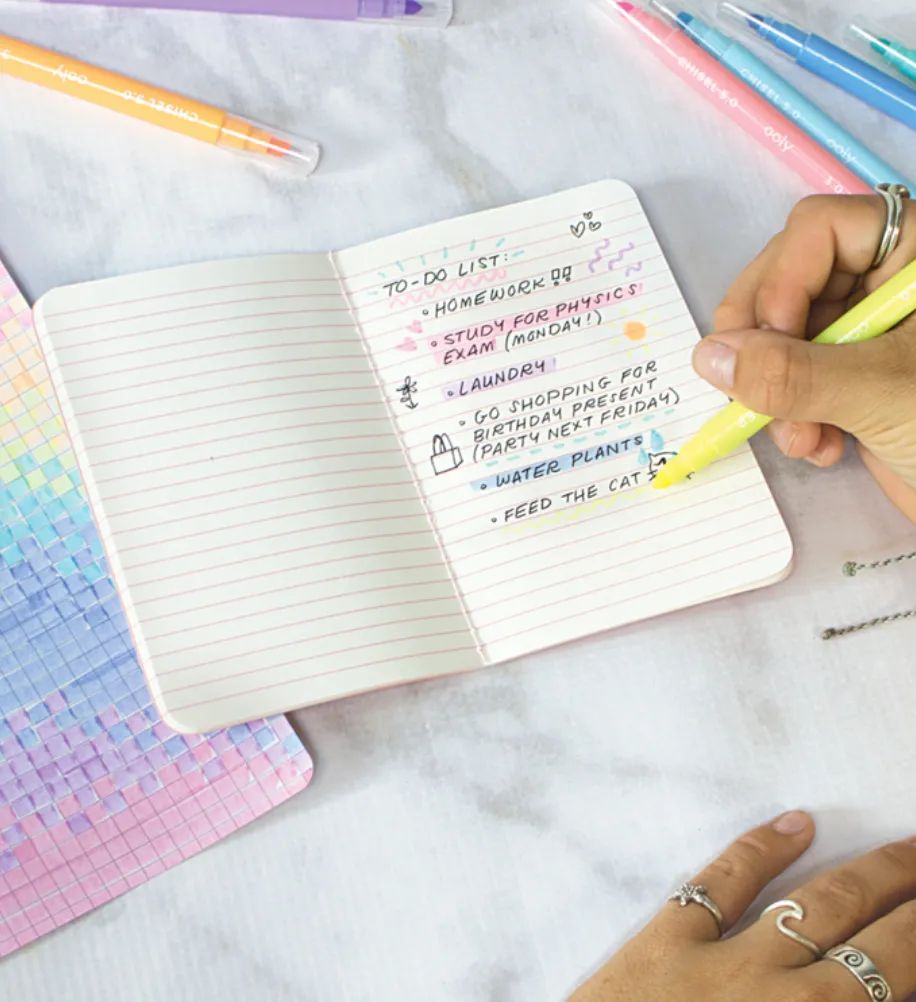 ooly CHISEL 5.0
CHISEL 5.0 ooly
CHISEL 5.0 ooly
TO-DO LIST:
◦ HOMEWORK!!
◦ STUDY FOR PHYSICS
EXAM (MONDAY!)
◦ LAUNDRY
◦ GO SHOPPING FOR
BIRTHDAY PRESENT
(PARTY NEXT FRIDAY)
◦ WATER PLANTS
◦ FEED THE CAT